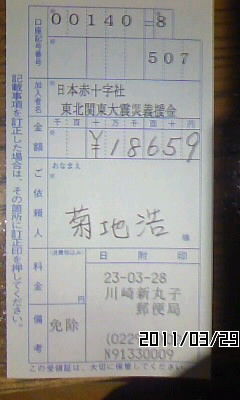 口座記号番号
00140=8
507
加入者名
日本赤十字社
東北関東大震災義援金
金額
千百十万千百十円
¥18659
ご依頼人
おなまえ
菊地浩
様
料金
(消費税込み)
円
備考
免除
日附印
23-03-28
川崎新丸子
郵便局
(0229
N91330009
記載事項を訂正した場合は、その箇所に訂正印を押してください。
この受領証は、大切に保管してください。
2011/03/29